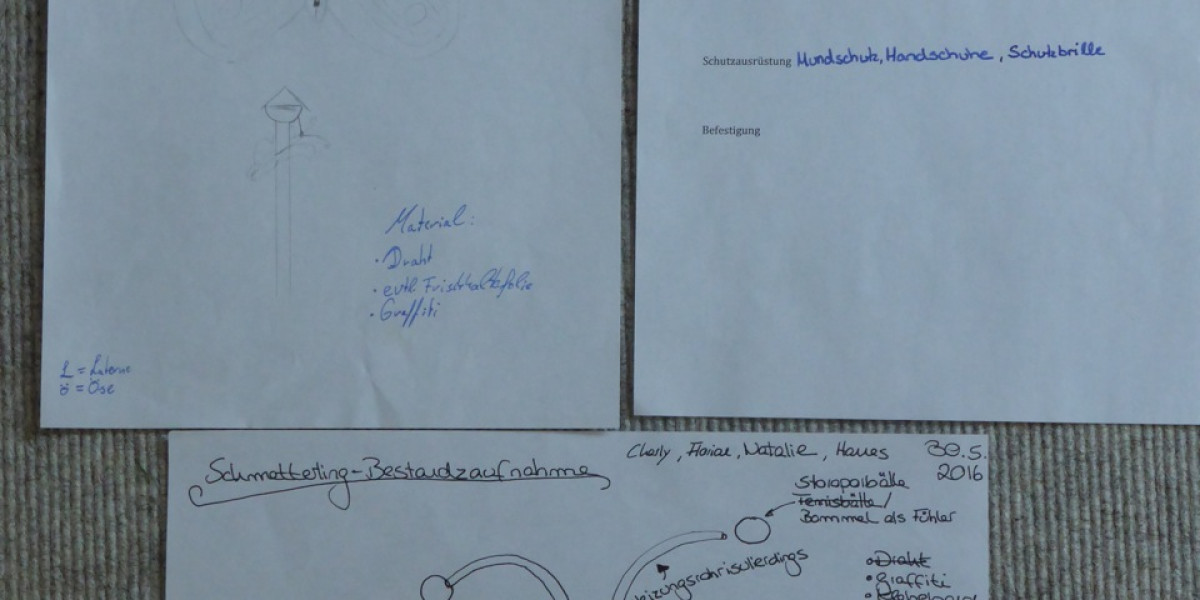 Material:
• Draht
• evtl Frischhaltefolie
• Graffiti
L = Laterne
ö = Öse
Schutzausrüstung Mundschutz, Handschuhe, Schutzbrille
Befestigung
Schmetterling-Bestandzaufnahme
Charly, Florian, Natalie, Hannes 30.5.
2016
Storoporbälle
Tennisbälle /
Bommel als Fühler
eizungsrohrisolierdings
• Draht
• Graffiti